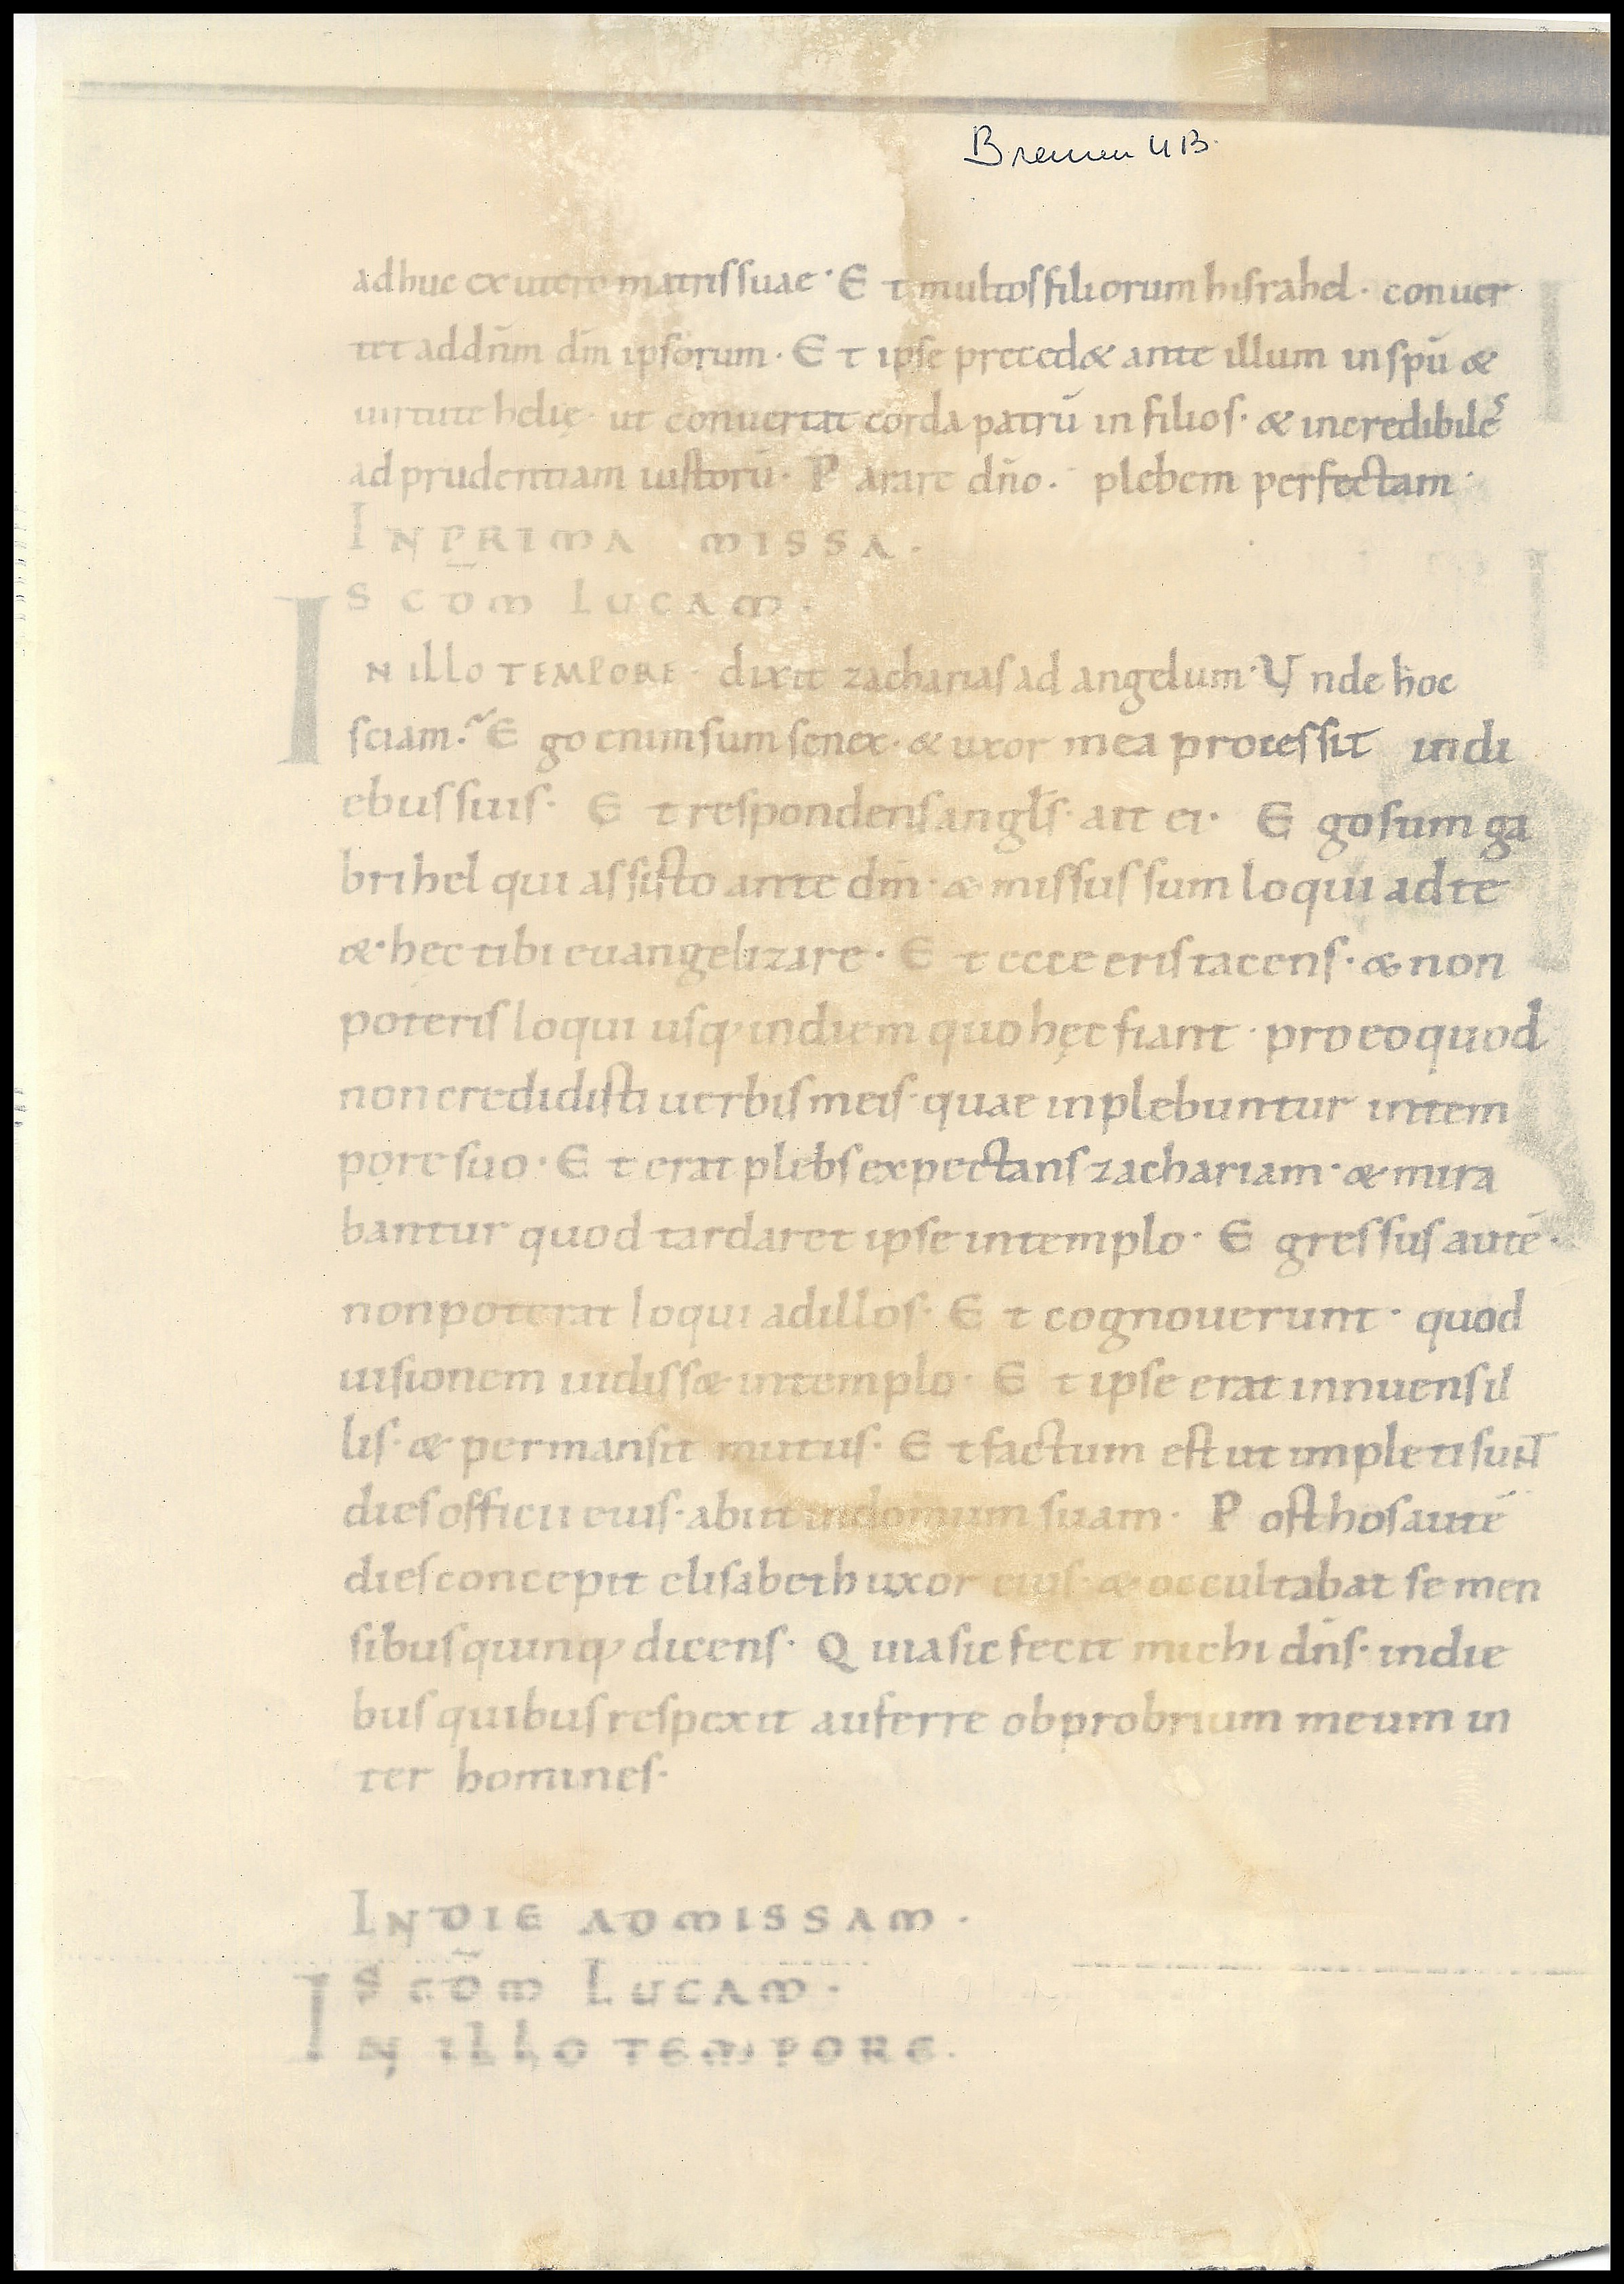 Bremen UB.
adhuc ex utero matris suae · Et multos filiorum hisrahel · conuer
tet ad dn̄m dm̄ ipsorum · Et ipse precedæ ante illum in spū &
uirtute helię · ut conuertat corda patrū in filios · & incredibiles
ad prudentiam iustorū · Parare dn̄o · plebem perfectam ·
IN PRIMA MISSA ·
SCDM LUCAM ·
IN ILLO TEMPORE · dixit zacharias ad angelum · Vnde hoc
sciam? Ego enim sum senex · & uxor mea processit in di
ebus suis · Et respondens angls̄ · ait ei · Ego sum ga
brihel qui assisto ante dm̄ · & missus sum loqui ad te
& · hęc tibi euangelizare · Et ecce eris tacens · & non
poteris loqui usq; in diem quo hęc fiant · pro eo quod
non credidisti uerbis meis · quae inplebuntur in tem
pore suo · Et erat plebs expectans zachariam · & mira
bantur quod tardaret ipse in templo · Egressus autē ·
non poterat loqui ad illos · Et cognouerunt · quod
uisionem uidiss& in templo · Et ipse erat innuens il
lis · & permansit mutus · Et factum est ut impleti sunt
dies officii eius · abiit in domum suam · Post hos autē
dies concepit elisabeth uxor eius · & occultabat se men
sibus quinq; dicens · Quia sic fecit michi dn̄s · in die
bus quibus respexit auferre obprobrium meum in
ter homines ·
IN DIE AD MISSAM ·
SCD̄M LUCAM ·
IN ILLO TEMPORE ·